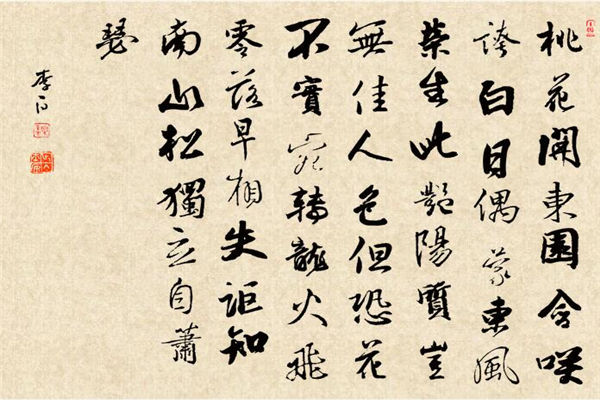 桃花開東園含咲
誇白日偶蒙東風
榮生此艷陽質豈
無佳人色但恐花
不實宛轉龍火飛
零落早相失詎知
南山松獨立自蕭
瑟
李白